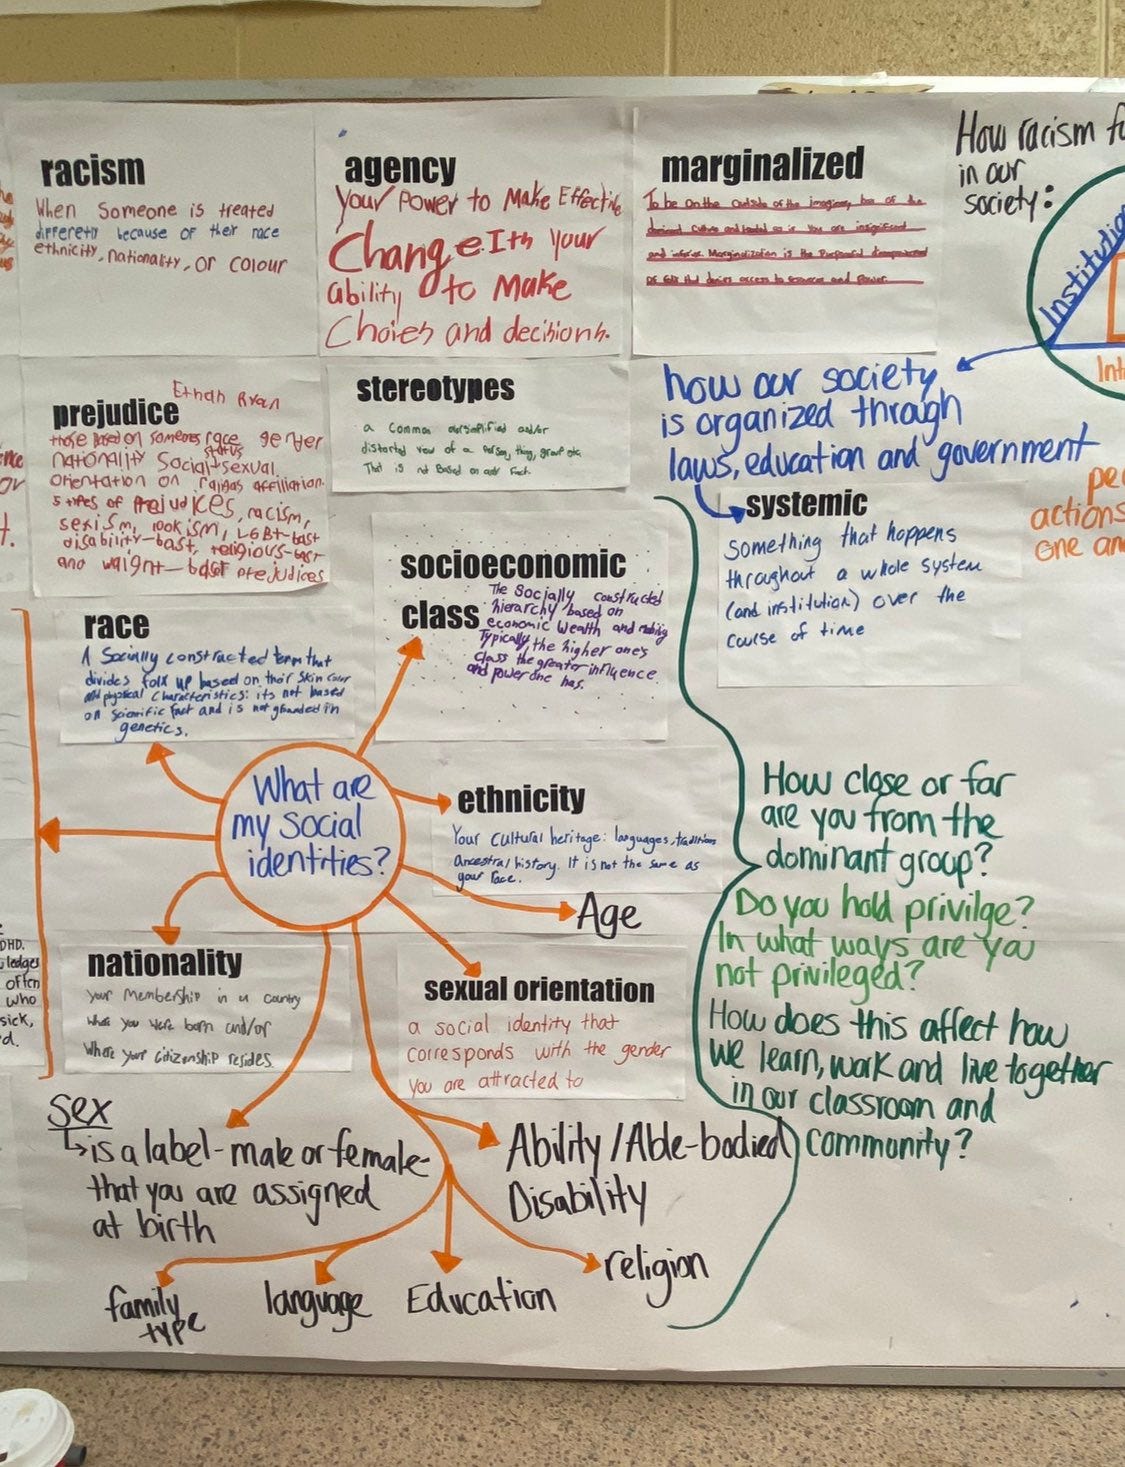 racism
When Someone is treated
differetly because of their race
ethnicity, nationality, or colour
agency
Your Power to Make Effective
Change. Its your
ability to Make
Choies and decisions.
marginalized
To be on the outside of the imaginary box of the
dominant culture and treated as if you are insignificant
and inferior. Marginalization is the Purposeful
of folx that denies access to resources and power.
How racism
in our
society:
Institution
how our society
is organized through
laws, education and government
systemic
Something that happens
throughout a whole system
(and institution) over the
course of time
actions
one an
Ethan Ryan
prejudice
those based on someones race gender
nationality Social status + sexual
orientation on affiliation.
5 types of Prejudices, racism,
sexism, lookism, LGBT-bast
disability-bast, religious-bast
and waight-bast prejudices
stereotypes
a Common oversimplified and/or
distorted view of a Person, thing, group etc.
That is not Based on any fact.
socioeconomic
class
The Socially constructed
hierarchy based on
economic Wealth and
Typically, the higher one's
class the greater influence
and power one has.
race
A Socially constructed term that
divides folx up based on their Skin Color
and physical characteristics: its not based
on scientific fact and is not grounded in
genetics.
What are
my Social
identities?
ethnicity
Your cultural heritage: languages, traditions
ancestral history. It is not the same as
your race.
Age
nationality
your Membership in a country
where you were born and/or
where your citizenship resides
sexual orientation
a social identity that
corresponds with the gender
you are attracted to
Sex
is a label - male or female -
that you are assigned
at birth
Ability / Able-bodied
Disability
religion
Education
language
family
type
How close or far
are you from the
dominant group?
Do you hold privilge?
In what ways are you
not privileged?
How does this affect how
we learn, work and live together
in our classroom and
community?
often
who
sick,